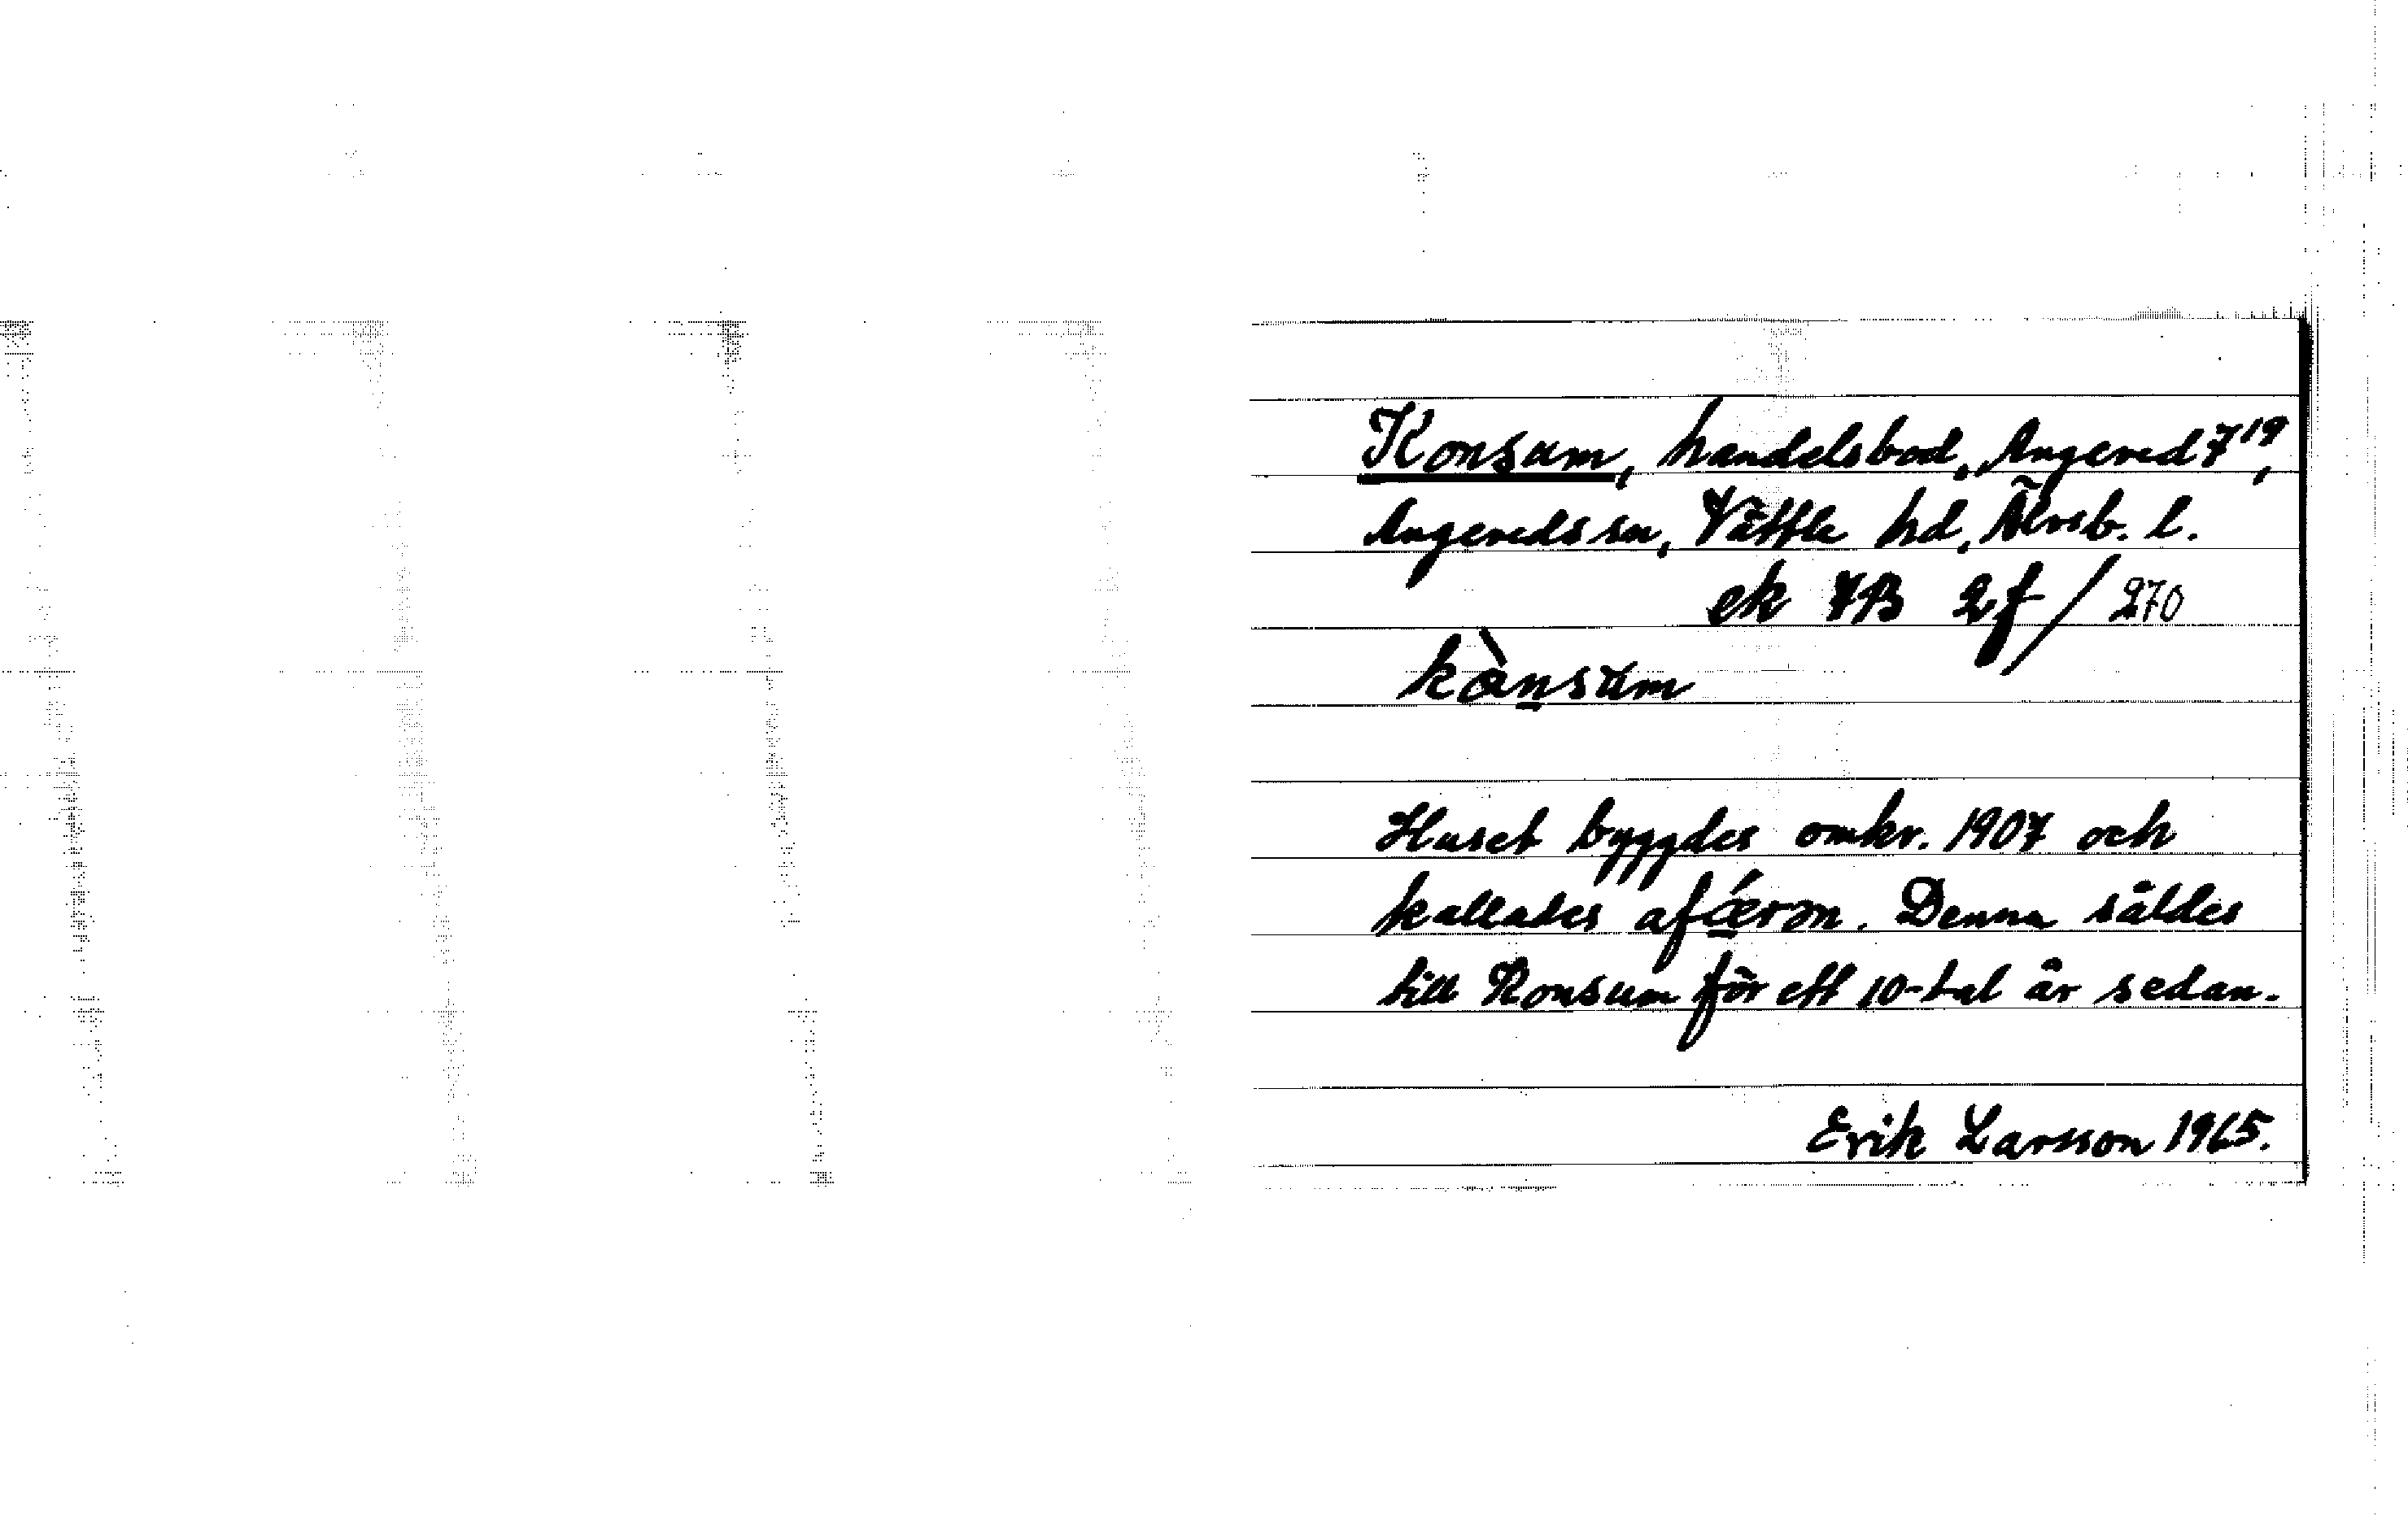 Konsum, handelsbod, Angered 7¹⁹,
Angereds sn, Vättle hd, Älvsb. l.
ek 7B 2f / 270
kònsum
Huset byggdes omkr. 1907 och
kallades afǽrən. Denna såldes
till Konsum för ett 10-tal år sedan.
Erik Larsson 1965.